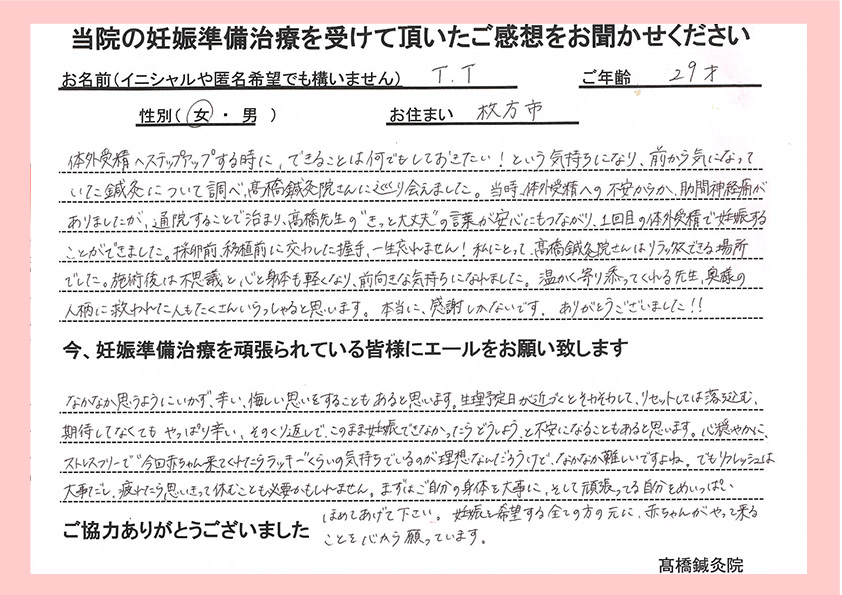 当院の妊娠準備治療を受けて頂いたご感想をお聞かせください
お名前(イニシャルや匿名希望でも構いません) T.T ご年齢 29才
性別( 女 ・ 男 ) お住まい 枚方市
体外受精へステップアップする時に、できることは何でもしておきたい!という気持ちになり、前から気になって
いた鍼灸について調べ、髙橋鍼灸院さんに巡り会えました。当時、体外受精への不安からか、肋間神経痛が
ありましたが、通院することで治まり、髙橋先生の"きっと大丈夫"の言葉が安心にもつながり、1回目の体外受精で妊娠する
ことができました。採卵前、移植前に交わした握手、一生忘れません!私にとって、髙橋鍼灸院さんはリラックスできる場所
でした。施術後は不思議と心と身体も軽くなり、前向きな気持ちになれました。温かく寄り添ってくれる先生、奥様の
人柄に救われた人もたくさんいらっしゃると思います。本当に、感謝しかないです。ありがとうございました!!
今、妊娠準備治療を頑張られている皆様にエールをお願い致します
なかなか思うようにいかず、辛い、悔しい思いをすることもあると思います。生理予定日が近づくとそわそわして、リセットしては落ち込む、
期待してなくても やっぱり辛い、そのくり返しで、このまま妊娠できなかったらどうしよう、と不安になることもあると思います。心穏やかに、
ストレスフリーで"今回赤ちゃん来てくれたらラッキー"くらいの気持ちでいるのが理想なんだろうけど、なかなか難しいですよね。でもリフレッシュは
大事だし、疲れたら思いきって休むことも必要かもしれません。まずはご自分の身体を大事に、そして頑張ってる自分をめいっぱい
ほめてあげて下さい。妊娠を希望する全ての方の元に、赤ちゃんがやって来る
ことを心から願っています。
ご協力ありがとうございました
髙橋鍼灸院